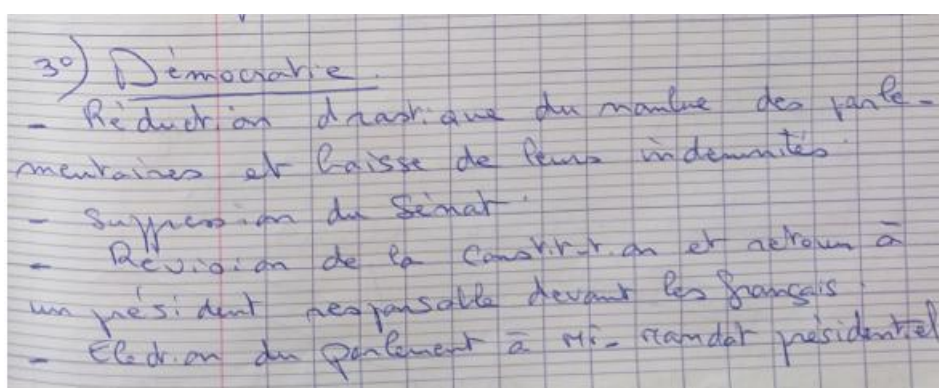 3°) Démocratie.
- Réduction drastique du nombre des parle-
mentaires et baisse de leurs indemnités.
- Suppression du Sénat.
- Révision de la Constitution et retour à
un président responsable devant les français.
- Election du parlement à Mi-mandat présidentiel